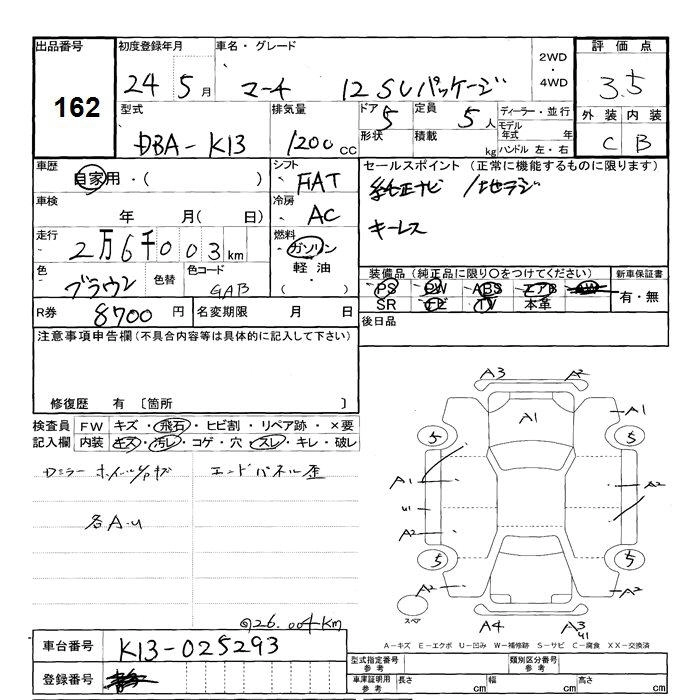 出品番号 初度登録年月 車名・グレード 2WD・4WD 評価点
162 24 5月 マーチ 12SVパッケージ 3.5
型式 排気量 ドア 定員 ディーラー・並行 外装 内装
DBA-K13 1200cc 5 5人 モデル年式 年 C B
形状 積載 kg ハンドル 左・右
車歴 自家用・( ) シフト FAT セールスポイント (正常に機能するものに限ります)
車検 年 月( 日) 冷房 AC 純正ナビ 地デジ
走行 2万6千003km 燃料 ガソリン キーレス
色 ブラウン 色替 色コード GAB 軽油・( ) 装備品 (純正品に限り○をつけてください) 新車保証書
PS PW ABS エアB 有・無
SR ナビ TV 本革
R券 8700円 名変期限 月 日 後日品
注意事項申告欄(不具合内容等は具体的に記入して下さい)
修復歴 有 〔箇所 〕
検査員 FW キズ・飛石・ヒビ割・リペア跡・×要
記入欄 内装 キズ・汚レ・コゲ・穴・スレ・キレ・破レ
ホイルキズ エンドパネル歪
各A-U
26.004km
A3 A2
A1 A1
5 5
A1 A2
U1
A2
5 5
A2 A2
スペア A4 A3 U1
A-キズ E-エクボ U-凹み W-補修跡 S-サビ C-腐食 XX-交換済
車台番号 K13-025293 型式指定番号 参考 類別区分番号 参考
登録番号 車庫証明用 参考 長さ cm 幅 cm 高さ cm